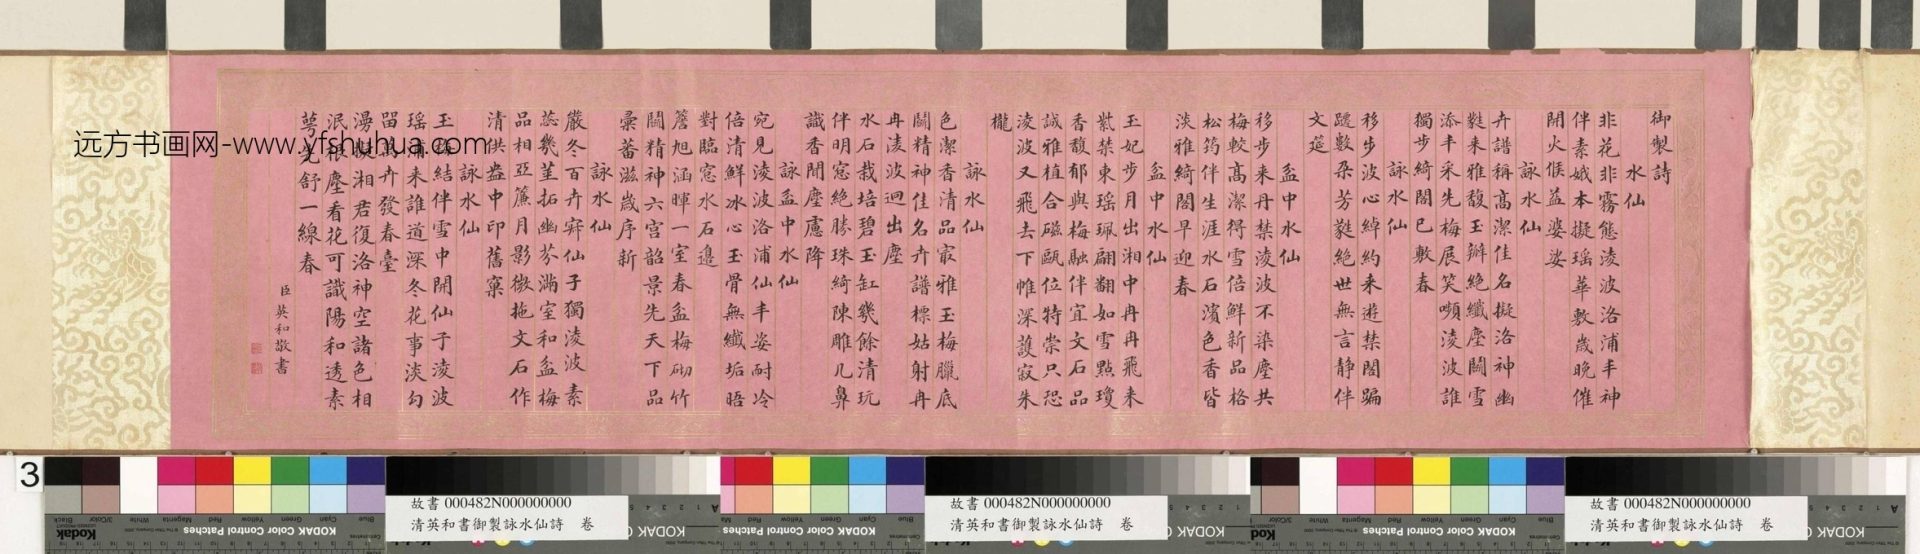 御製詩
水仙
非花非霧態淩波洛浦丰神
伴素娥本擬瑶華敷歲晚催
開火候益婆娑
詠水仙
卉譜稱髙潔佳名擬洛神幽
㽔来雅馥玉瓣絶纖塵闘雪
添丰采先梅展笑嚬淩波誰
獨步綺閣已敷春
詠水仙
移步波心綽約来逰禁閣
躚數朶芳㽔絶世無言静伴
文筵
盆中水仙
移步来丹禁淩波不染塵共
梅較髙潔得雪倍鮮新品格
松筠伴生涯水石濱色香皆
淡雅綺閣早迎春
盆中水仙
玉妃步月出湘中冉冉飛来
紫禁東瑶珮翩翻如雪點瓊
香馥郁與梅融伴宜文石品
誠雅植合磁甌位特崇只恐
淩波又飛去下帷深護寂朱
櫳
詠水仙
色潔香清品冣雅玉梅臘底
闘精神佳名卉譜標姑射冉
冉淩波迥出塵
水石栽培碧玉缸幾餘清玩
伴明窓絶勝珠綺陳雕几鼻
識香聞塵慮降
詠盆中水仙
宛見淩波洛浦仙丰姿耐冷
倍清鮮冰心玉骨無纖垢晤
對臨窓水石邉
簷旭涵暉一室春盆梅砌竹
闘精神六宫韶景先天下品
彙蕃滋歲序新
詠水仙
嚴冬百卉寂仙子獨淩波素
蕊幾莖拓幽芬滿室和盆梅
品相亞簾月影微拖文石作
清供盎中印舊窠
詠水仙
玉 結伴雪中開仙子淩波
瑶浦来誰道深冬花事淡勾
留萬卉發春臺
湯 擬湘君復洛神空諸色相
泯根塵看花可識陽和透素
萼先舒一線春
臣英和敬書
远方书画网-www.yfshuhua.com
3
故書 000482N000000000
清英和書御製詠水仙詩 卷
故書 000482N000000000
清英和書御製詠水仙詩 卷
故書 000482N000000000
清英和書御製詠水仙詩 卷
Blue Cyan Green Yellow Red Magenta White 3/Color Black
KODAK Color Control Patches
Kodak
KODAK
KODAK Color Control Patches
KODAK
KODAK Color Control Patches
Kodak
KODAK